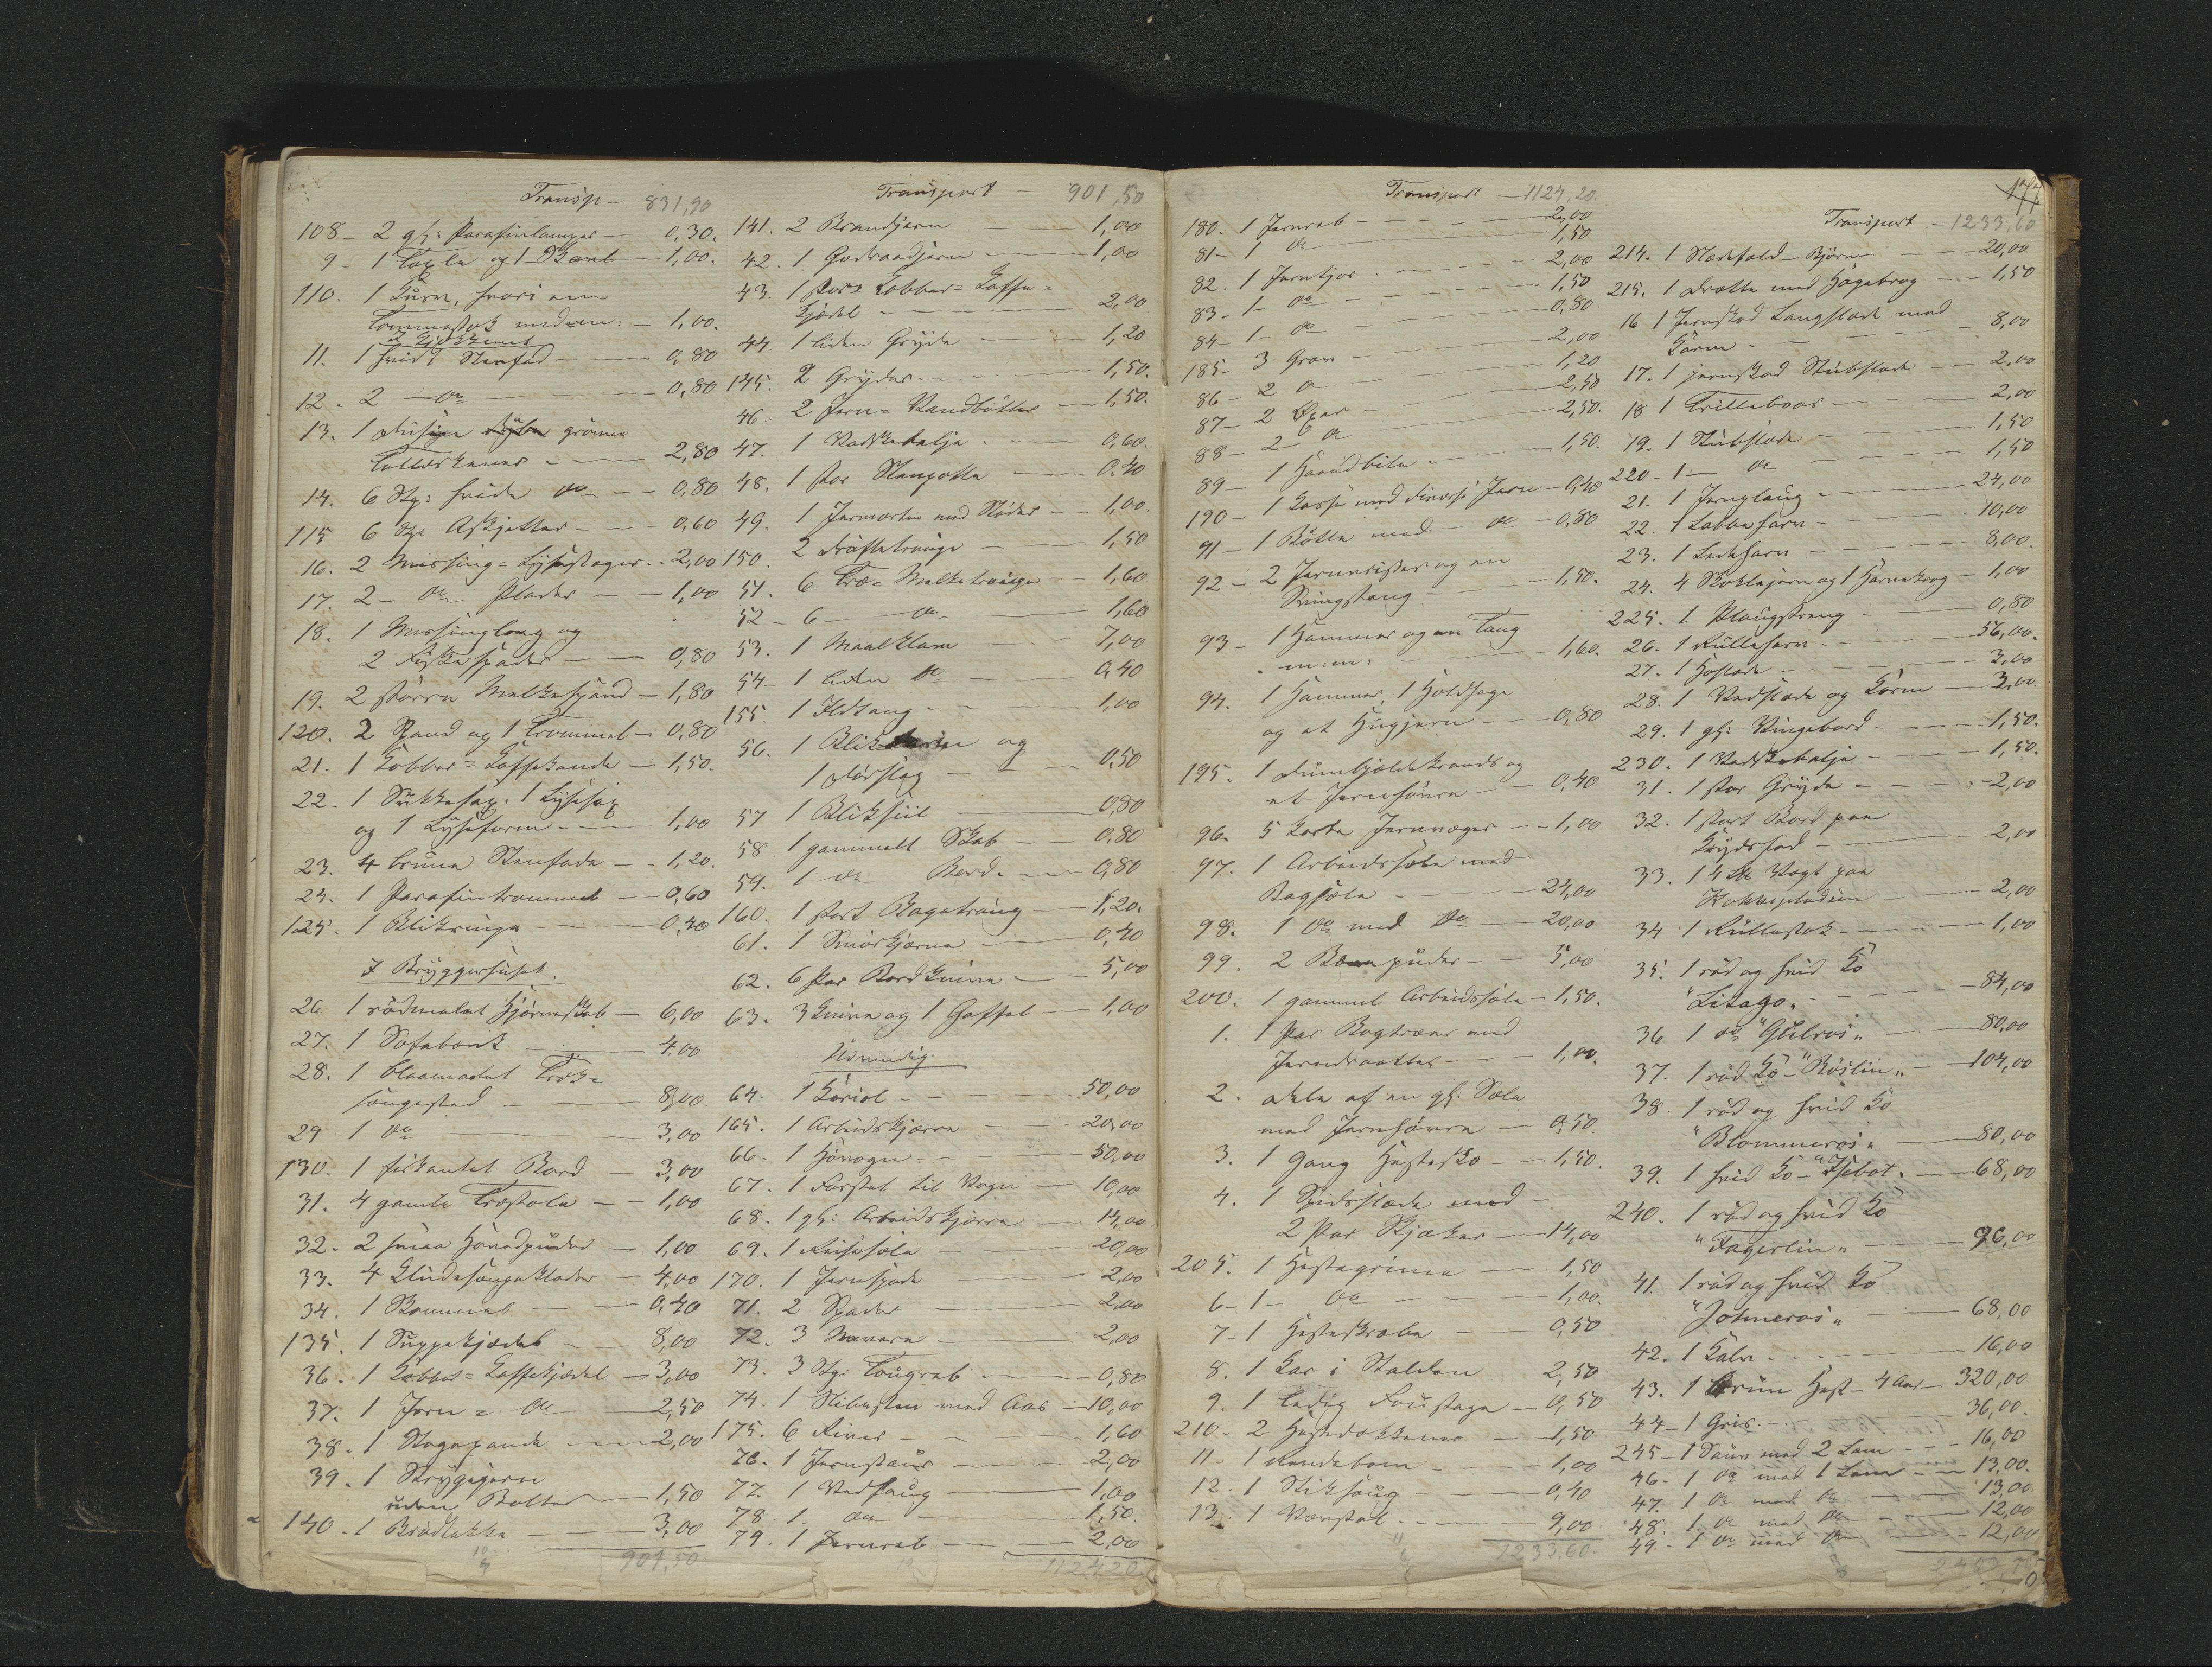 Transp — 831,90
108 — 2 gl: Parafinlamper — 0,30.
9 — 1 Taxla og 1 Skaal — 1,00.
110. 1 Kurv, hvori en
Tommestok med m: — 1,00.
I Kjøkkenet
11. 1 hvidt Stenfad — 0,80
12. 2 — do — 0,80
13. 1 Dusin grønne
Tallerkener — 2,80
14. 6 Stk: hvide do — 0,80
115 6 Stk Asjetter — 0,60
16. 2 Messing = Lysestager — 2,00
17. 2 — do Plader — 1,00
18. 1 Messing og
2 Fiskespader — 0,80
19. 2 større Melkespand — 1,80
120. 2 Spand og 1 Trommel — 0,80
21. 1 Kobber = Kaffekande — 1,50.
22. 1 Sukkersax. 1 Lysesax
og 1 Lyseform — 1,00
23. 4 brune Stenfade — 1,20.
24. 1 Parafintrommel — 0,60
125. 1 Blikringe — 0,40
I Bryggerhuset.
26. 1 rødmalet Hjørneskab — 6,00
27. 1 Sofabænk — 4,00
28. 1 blaamalet Træk=
sengested — 8,00
29 1 do — 3,00
130. 1 firkantet Bord — 3,00
31. 4 gamle Træstole — 1,00
32. 2 smaa Hovedpuder — 1,00
33. 4 Sengeklæder — 4,00
34. 1 — 0,40
135. 1 Suppekjedel — 8,00
36. 1 Kobber = Kaffekjedel — 3,00
37. 1 Jern = do — 2,50
38. 1 Stegepande — 2,00
39. 1 Strygejern
uden Bolter — 1,50
140. 1 Brødtakke — 3,00
901,50
Transport — 901,50
141. 2 Brandjern — 1,00
42. 1 Goderaadjern — 1,00
43. 1 stor Kobber = Kaffe=
kjedel — 2,00
44. 1 liden Gryde — 1,20
145. 2 Gryder — 1,50.
46. 2 Jern = Vandbøtter — 1,50.
47. 1 Vadskebalje — 0,60.
48. 1 stor Stenpotte — 0,40
49. 1 Jernmorter med Støder — 1,00.
150. 2 Drøftetrauge — 1,50
51. 6 Træ = Melketrauge — 1,60
52 — 6 — do — 1,60
53. 1 Maalklave — 7,00
54 — 1 liden do — 0,40
155. 1 Ildtang — 1,00
56. 1 Blik og
1 Dørslag — 0,50
57 1 Bliksiil — 0,80
58 1 gammelt Skab — 0,80
59. 1 do Bord — 0,80
160. 1 stort Bagetraug — 1,20.
61. 1 Smørkjærne — 0,40
62. 6 Par Bordknive — 5,00
63. 3 Knive og 1 Gaffel — 1,00
Udvendig
64. 1 Kariol — 50,00
165. 1 Arbeidskjærre — 20,00
66. 1 Høvogn — 50,00
67. 1 Forstel til Vogn — 10,00
68. 1 gl: Arbeidskjærre — 14,00
69. 1 Reisesele — 20,00
170. 1 Jernspade — 2,00
71. 2 Spader — 2,00
72. 3 Navere — 2,00
73. 3 Stk: Tougreb — 0,80
74. 1 Slibesten med Aas — 10,00
175. 6 River — 1,60
76. 1 Jernstaur — 2,00
77. 1 Vedsaug — 1,00
78. 1 do — 1,50.
79. 1 Jerngreb — 2,00
1124,20
Transport — 1124,20.
180. 1 Jerngreb — 2,00
81 — 1 do — 1,50
82. 1 Jerntjor — 2,00
83. 1 — do — 1,50
84 — 1 — do — 0,80
185 — 3 Grev — 2,00
86 — 2 do — 1,20
87 — 2 Øxer — 2,50
88 — 2 do — 2,50.
89 — 1 Haandbile — 1,50.
190 — 1 Kasse med diverse Jern — 0,40
91 — 1 Bøtte med — do — 0,80
92 — 2 Jernrister og en
Svingstang — 1,50.
93 — 1 Hammer og en Tang
m: m: — 1,60.
94. 1 Hammer, 1 Holdsage
og et Hugjern — 0,80
195. 1 og
et Jernhavre — 0,40
96. 5 Korte Jernvæger — 1,00
97. 1 Arbeidssele med
Bagsele — 24,00
98. 1 do med do — 20,00
99. 2 Bompuder — 5,00
200. 1 gammel Arbeidssele — 1,50.
1. 1 Par Bogtræer med
Jerndraatter — 1,00.
2. Dele af en gl: Sele
med Jernhavre — 0,50
3. 1 Gang Hestesko — 1,50.
4. 1 Spidsslæde med
2 Par Skjæker — 14,00
205. 1 Hestegrime — 1,50
6 — 1 — do — 1,00.
7 — 1 Hesteskrabe — 0,50
8. 1 Kar i Stalden 2,50
9. 1 ledig — 0,50
210 — 2 Hestedækkener — 1,50
11 1 Rendebom — 1,00
12. 1 Stiksaug — 0,40
13. 1 Vævstol — 9,00
1233,60.
177
Transport — 1233,60
214. 1 — 20,00
215. 1 Drætte med Høgebrog — 1,50
16 1 Jernskod Langslæde med
Karm — 8,00
17. 1 jernskod Stubslæde — 2,00
18 1 Trillebaar — 2,00
19. 1 Stubslæde — 1,50
220 — 1 — do — 1,50
21. 1 Jernplaug — 24,00
22. 1 Labbeharv — 10,00
23. 1 Ledharv — 8,00.
24. 4 og 1 — 1,00
225. 1 Plaugstreng — 0,80
26. 1 Rulleharv — 56,00.
27. 1 Høslæde — 3,00
28. 1 Vedslæde og Karm — 3,00.
29. 1 gl: Vingebord — 1,50.
230. 1 Vadskebalje — 1,50.
31. 1 stor Gryde — 2,00
32. 1 stort Bord paa
Krydsfod — 2,00
33. 1 Vægt paa
— 2,00
34 1 Rullestok — 1,00
35. 1 rød og hvid Ko
"Litago" — 84,00
36 1 do "Gulros" — 80,00
37. 1 rød Ko — "Røslin" — 104,00
38. 1 rød og hvid Ko
"Blommeros" — 80,00
39. 1 hvid Ko — — 68,00
240. 1 rød og hvid Ko
"Fagerlin" — 96,00
41. 1 rød og hvid Ko
— 68,00
42. 1 Kalv — 16,00
43. 1 brun Hest — 4 Aar — 320,00
44 — 1 Gris — 36,00.
245 — 1 Sau med 2 Lam — 16,00
46 — 1 do med 1 Lam — 13,00.
47. 1 do med do — 13,00.
48. 1 do med do — 12,00
49 — 1 do med do — 12,00